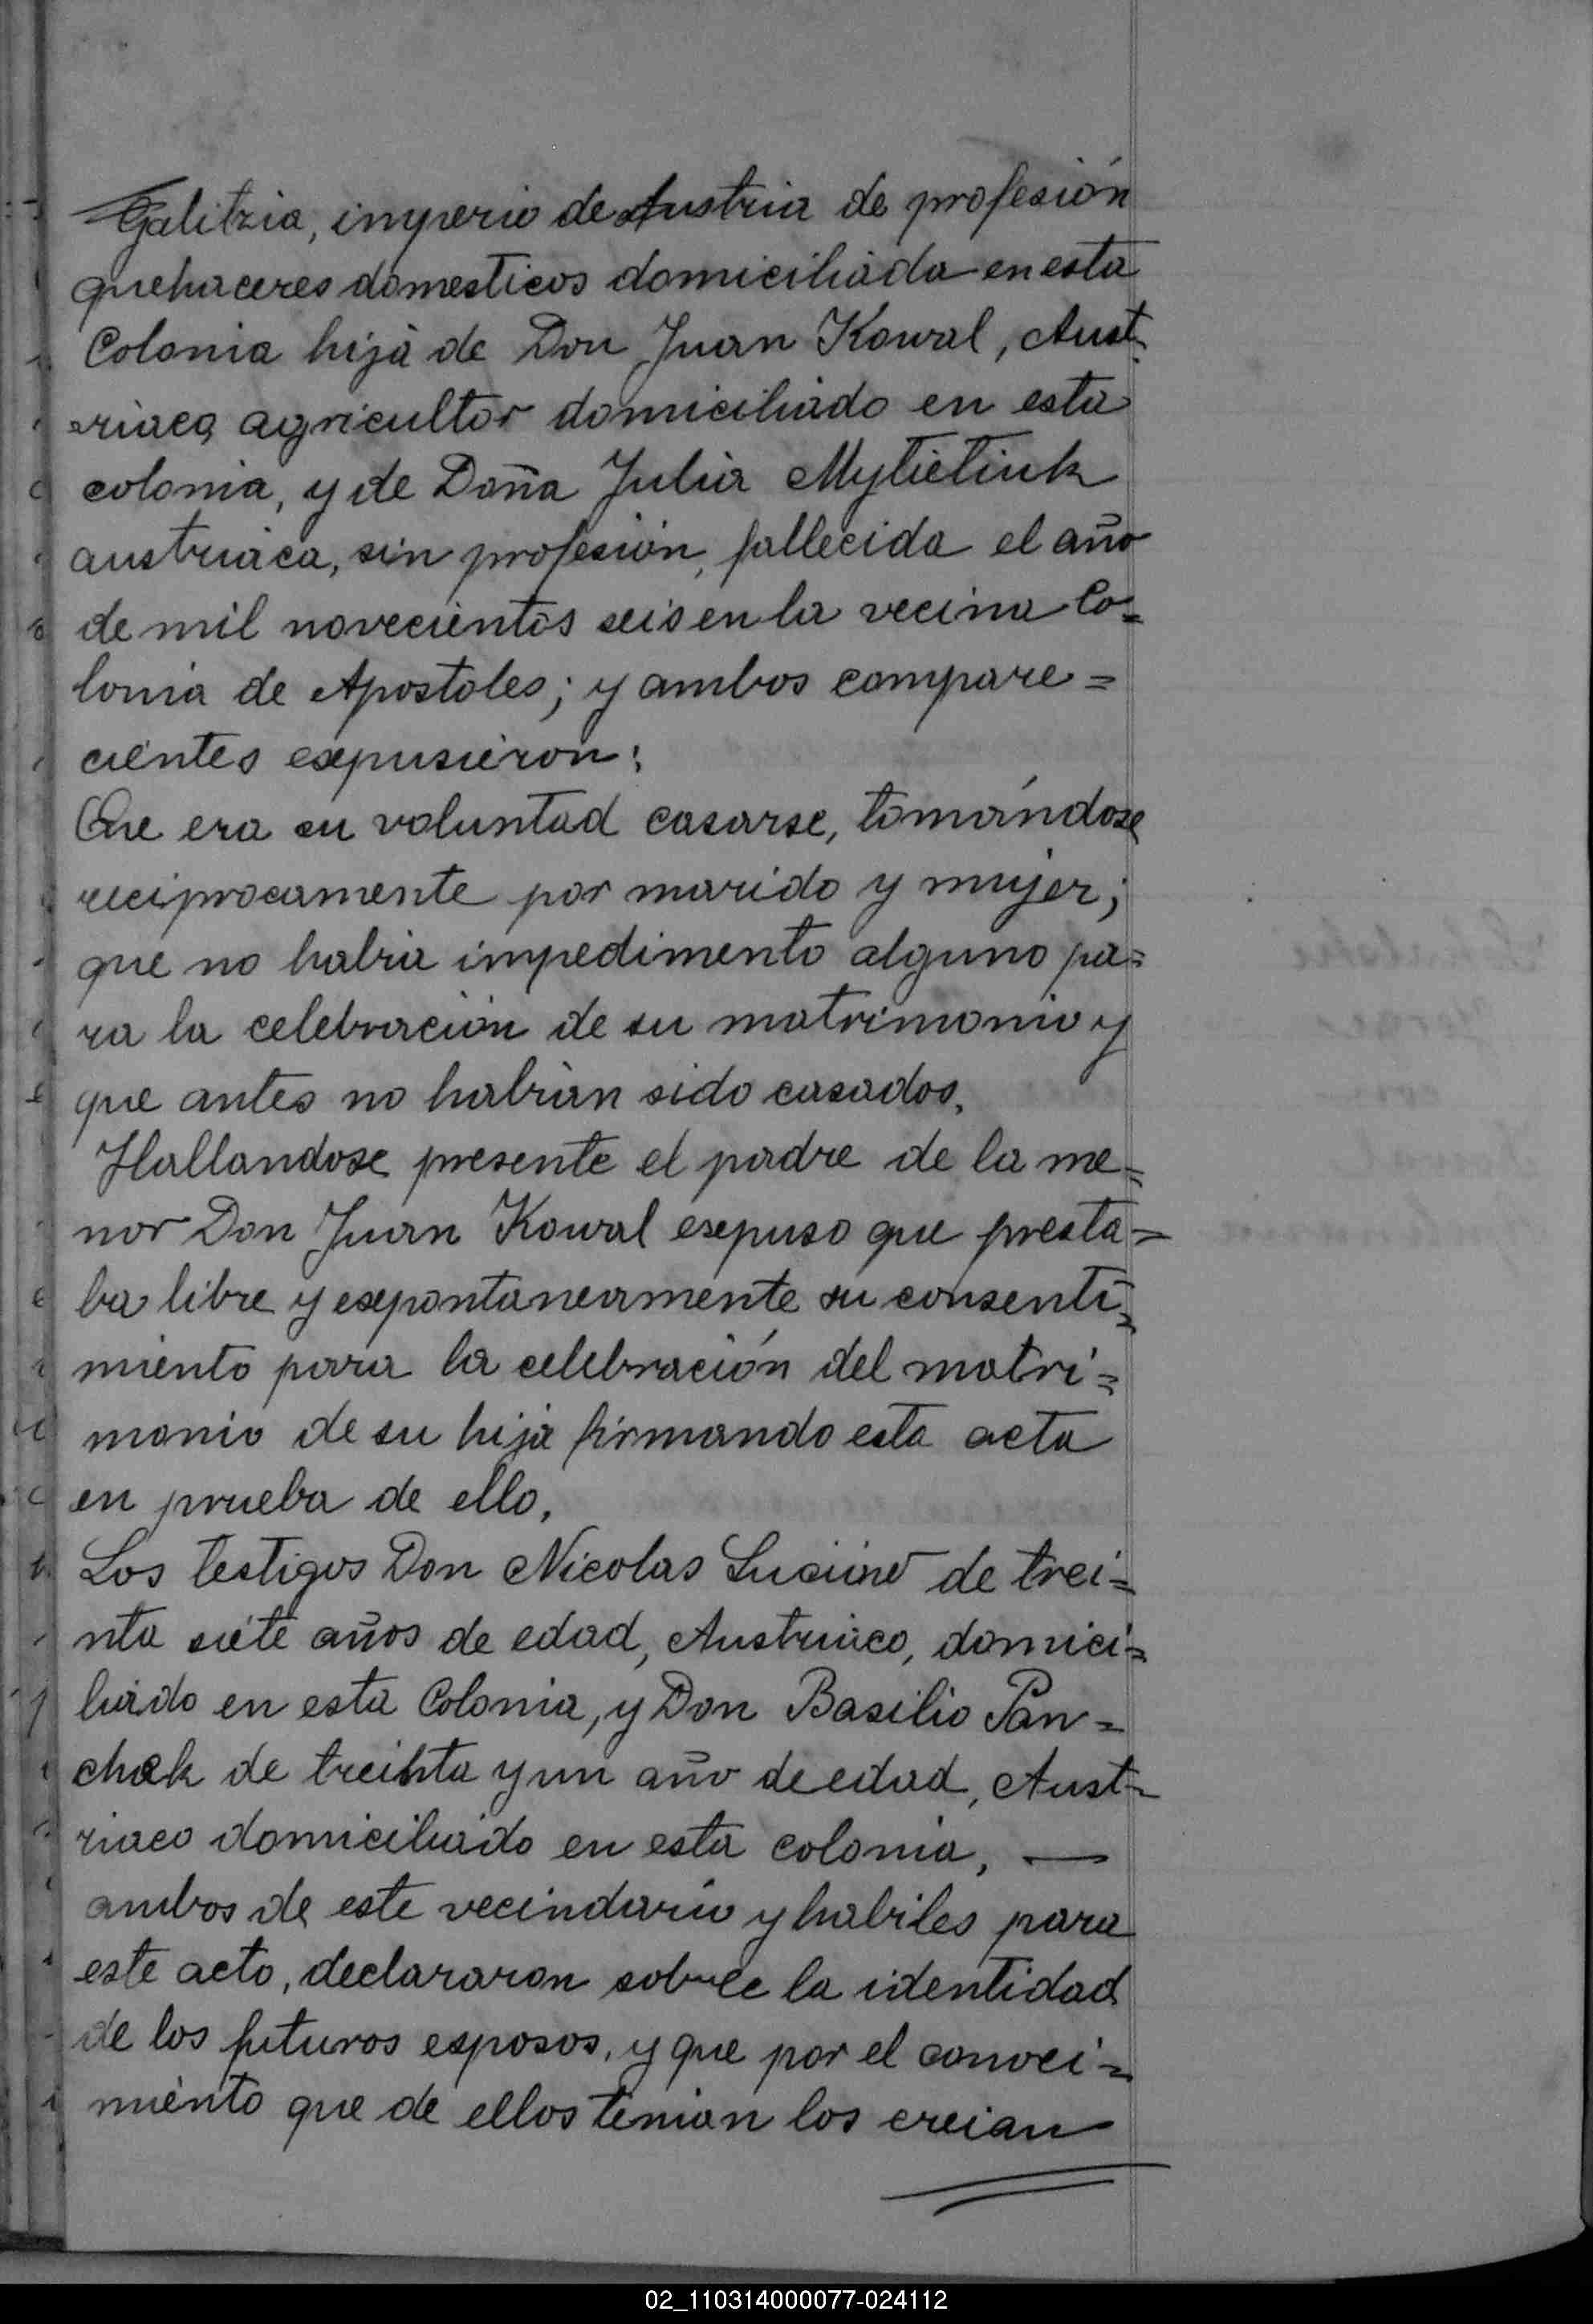 Galitzia, imperio de Austria de profesión
quehaceres domesticos domiciliada en esta
Colonia hija de Don Juan Kowal, Aust-
riaco, agricultor domiciliado en esta
colonia, y de Doña Julia Mytietiuk
austriaca, sin profesión, fallecida el año
de mil novecientos seis en la vecina Co=
lonia de Apostoles; y ambos compare=
cientes expusieron:
Que era su voluntad casarse, tomándose
reciprocamente por marido y mujer;
que no habia impedimento alguno pa=
ra la celebración de su matrimonio y
que antes no habian sido casados.
Hallandose presente el padre de la me=
nor Don Juan Kowal expuso que presta=
ba libre y expontaneamente su consenti=
miento para la celebración del matri=
monio de su hija firmando esta acta
en prueba de ello.
Los testigos Don Nicolas de trei=
nta siete años de edad, Austriaco, domici=
liado en esta Colonia, y Don Basilio Pan=
chek de treinta y un año de edad, Aust=
riaco domiciliado en esta colonia, —
ambos de este vecindario y habiles para
este acto, declararon sobre la identidad
de los futuros esposos, y que por el conoci=
miento que de ellos tenian los creian
02_110314000077-024112